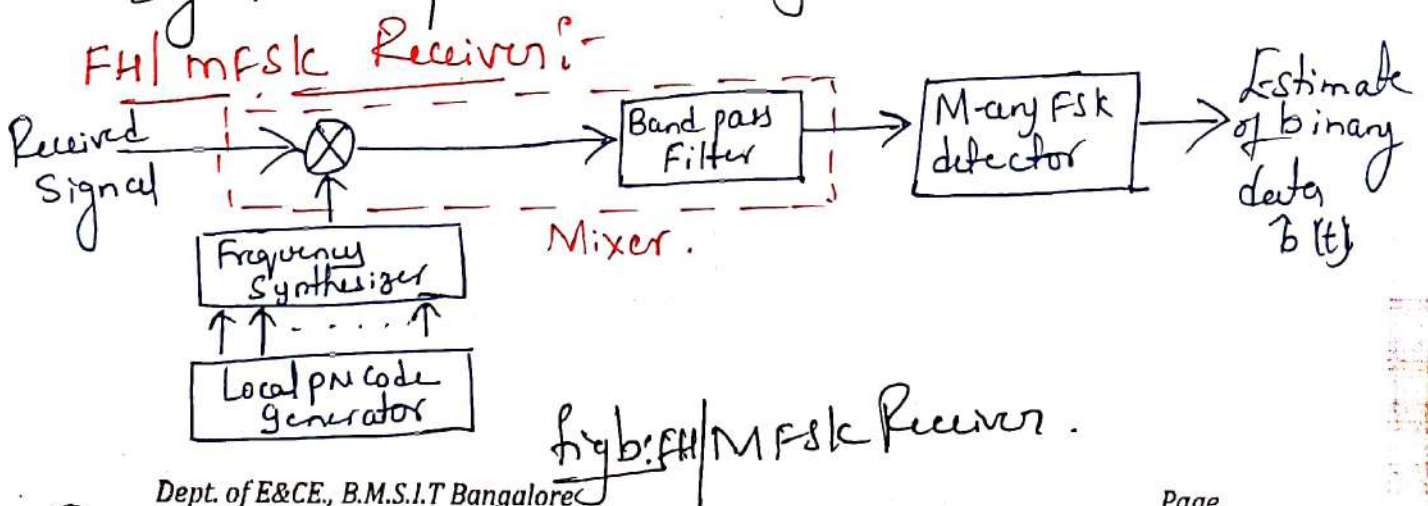 FH/mFSK Receiver:-
Received
Signal
Band pass
Filter
M-ary FSK
detector
Estimate
of binary
data
b̂(t)
Mixer.
Frequency
Synthesizer
Local PN Code
generator
fig b: FH/MFSK Receiver.
Dept. of E&CE., B.M.S.I.T Bangalore
Page